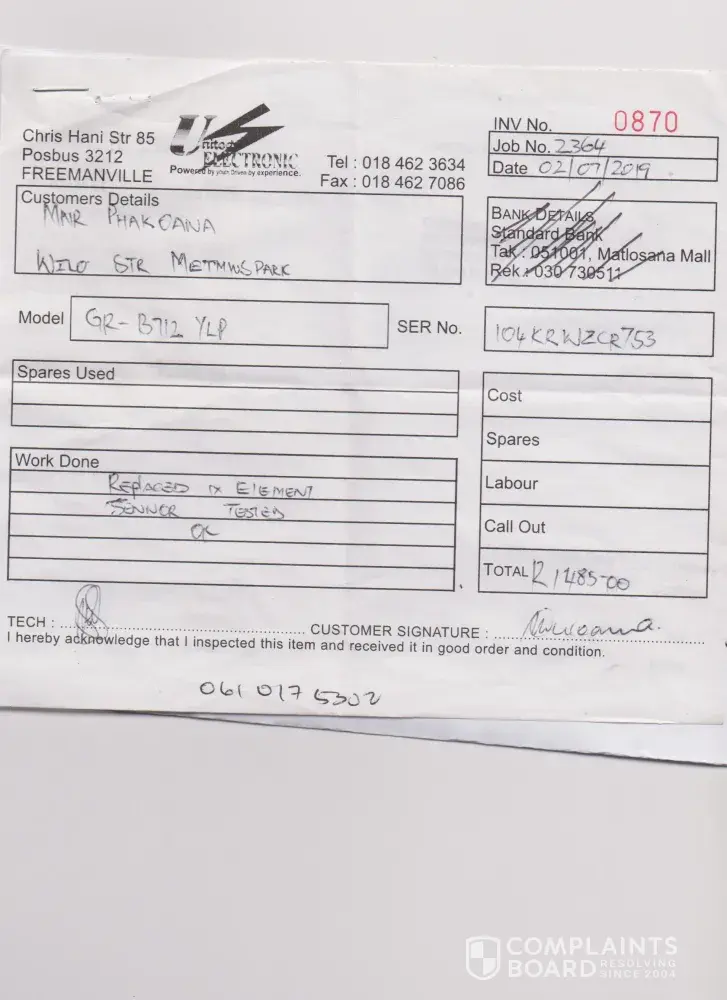 Chris Hani Str 85
Posbus 3212
FREEMANVILLE
United
ELECTRONIC
Powered by youth Driven by experience.
Tel : 018 462 3634
Fax : 018 462 7086
INV No. 0870
Job No. 2364
Date 02/07/2019
Customers Details
WILO STR METMWSPARK
BANK DETAILS
Standard Bank
Tak : 051001, Matlosana Mall
Rek : 030 730511
Model GR-B712 YLP
SER No. 104KRWZCR753
Spares Used
Work Done
REPLACED 1X ELEMENT
SENNOR TESTED
OK
Cost
Spares
Labour
Call Out
TOTAL R 1485-00
TECH :
CUSTOMER SIGNATURE :
I hereby acknowledge that I inspected this item and received it in good order and condition.
061 017 5302
COMPLAINTS
BOARD RESOLVING
SINCE 2004